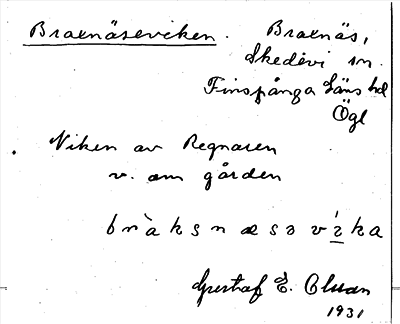 Braxnäseviken. Braxnäs,
Skedevi sn.
Finspånga Läns hd
Ögl
Viken av Regnaren
v. om gården
bràksnæsavíka
Gustaf E. Olsson
1931